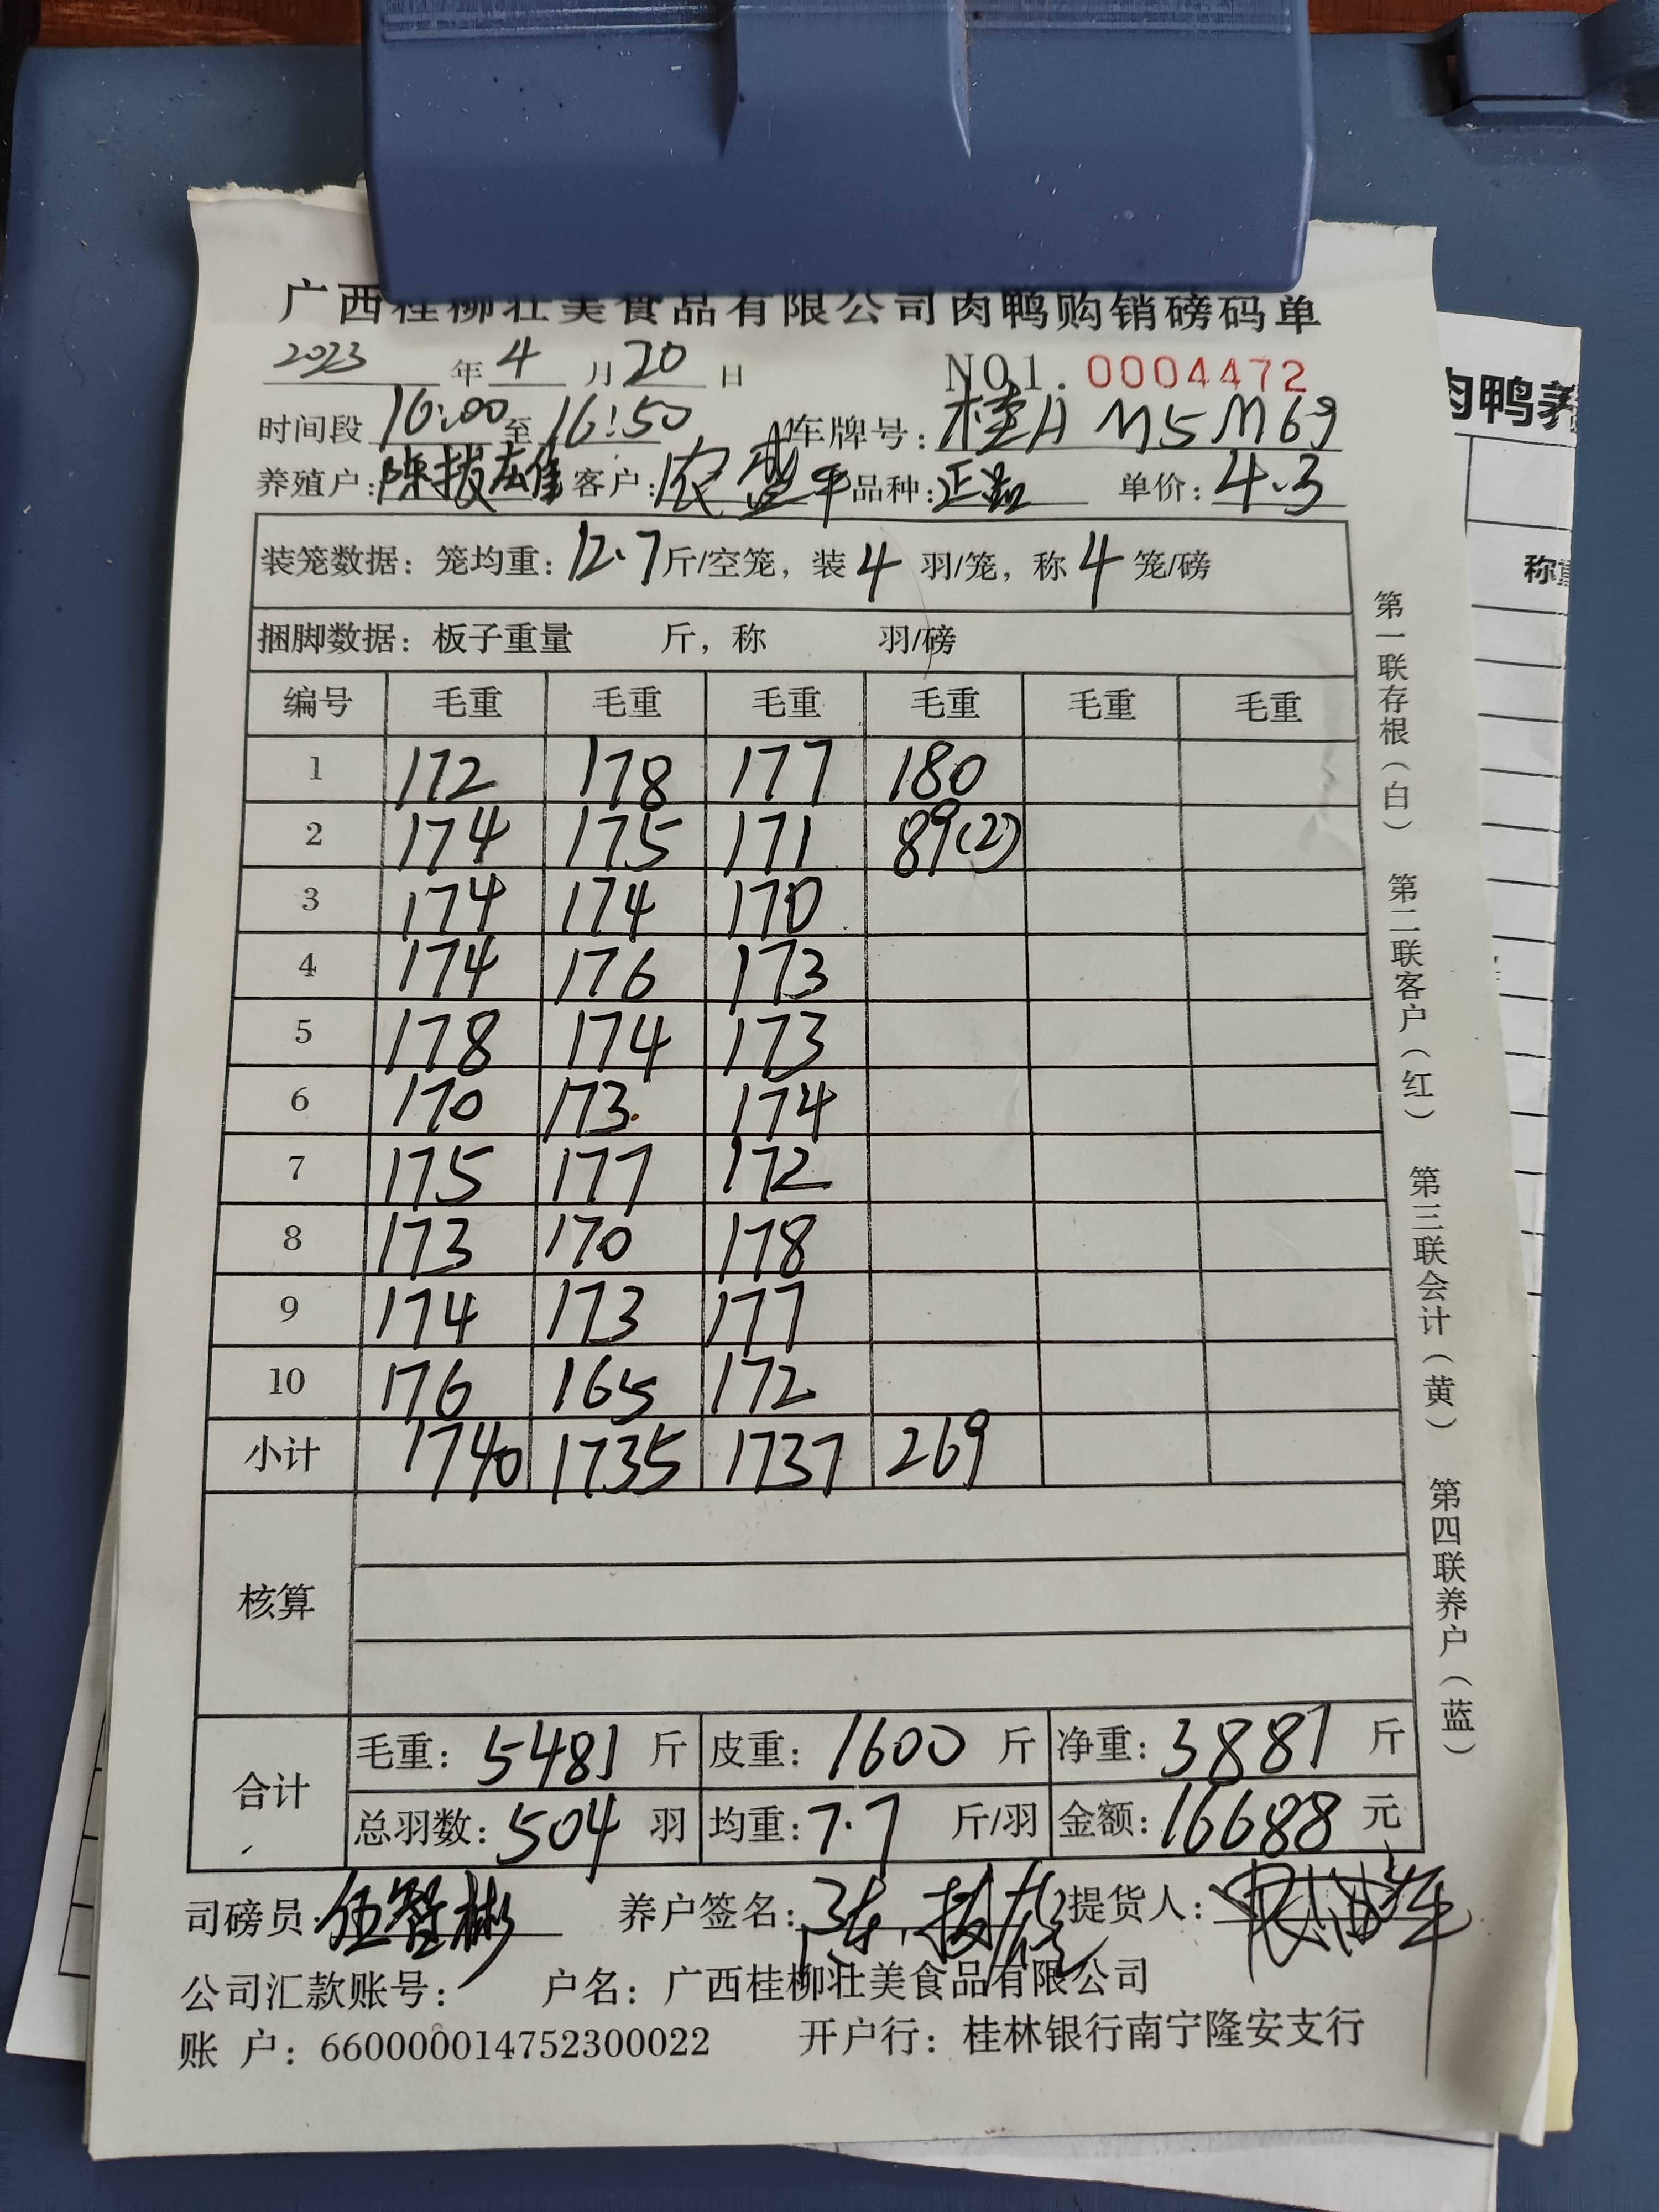 广西桂柳壮美食品有限公司肉鸭购销磅码单
2023 年 4 月 20 日 NO1. 0004472
时间段 16:00 至 16:50 车牌号: 桂A M5M69
养殖户: 陈拔雄 客户: 农 平 品种: 正品 单价: 4.3
装笼数据: 笼均重: 12.7 斤/空笼, 装 4 羽/笼, 称 4 笼/磅
捆脚数据: 板子重量 斤, 称 羽/磅
编号 毛重 毛重 毛重 毛重 毛重 毛重
1 172 178 177 180
2 174 175 171 89(2)
3 174 174 170
4 174 176 173
5 178 174 173
6 170 173. 174
7 175 177 172
8 173 170 178
9 174 173 177
10 176 165 172
小计 1740 1735 1737 269
核算
合计
毛重: 5481 斤 皮重: 1600 斤 净重: 3881 斤
总羽数: 504 羽 均重: 7.7 斤/羽 金额: 16688 元
司磅员: 伍智彬 养户签名: 陈拔雄 提货人:
公司汇款账号: 户名: 广西桂柳壮美食品有限公司
账 户: 660000014752300022 开户行: 桂林银行南宁隆安支行
第一联存根(白) 第二联客户(红) 第三联会计(黄) 第四联养户(蓝)
肉鸭养
称重